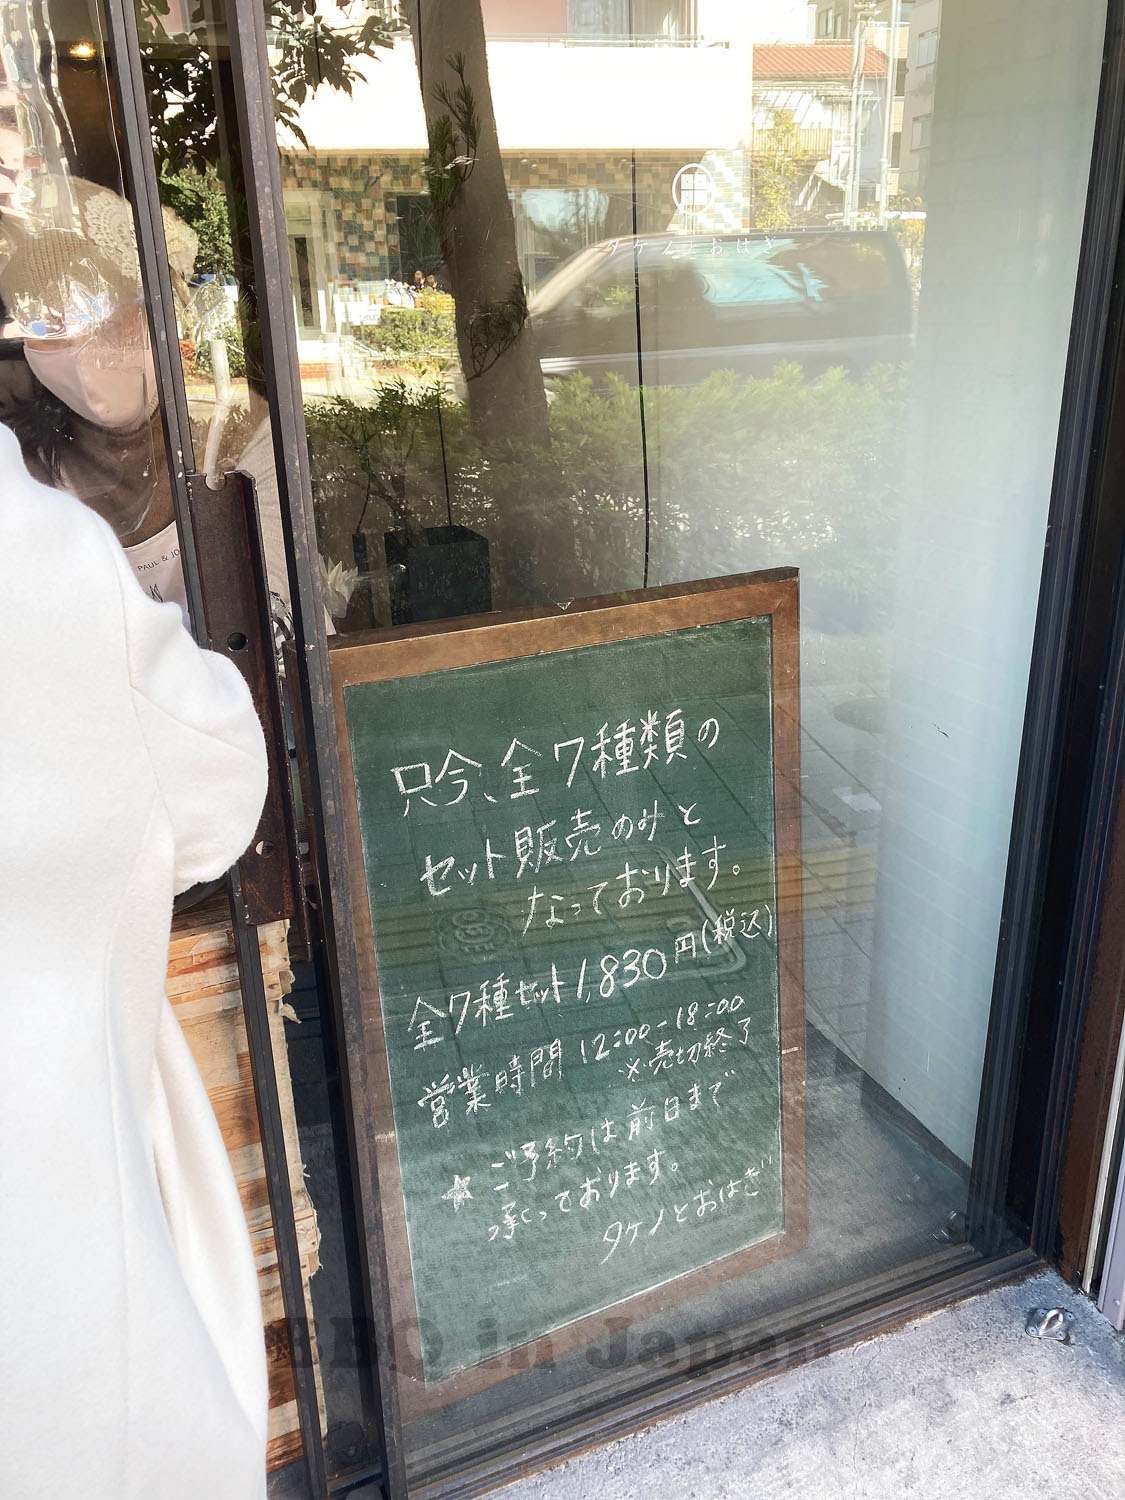 タケノとおはぎ
PAUL & JO
只今、全7種類の
セット販売のみと
なっております。
全7種セット 1,830円(税込)
営業時間 12:00-18:00
※売切終了
★ ご予約は前日まで
承っております。
タケノとおはぎ
BBQ in Japan